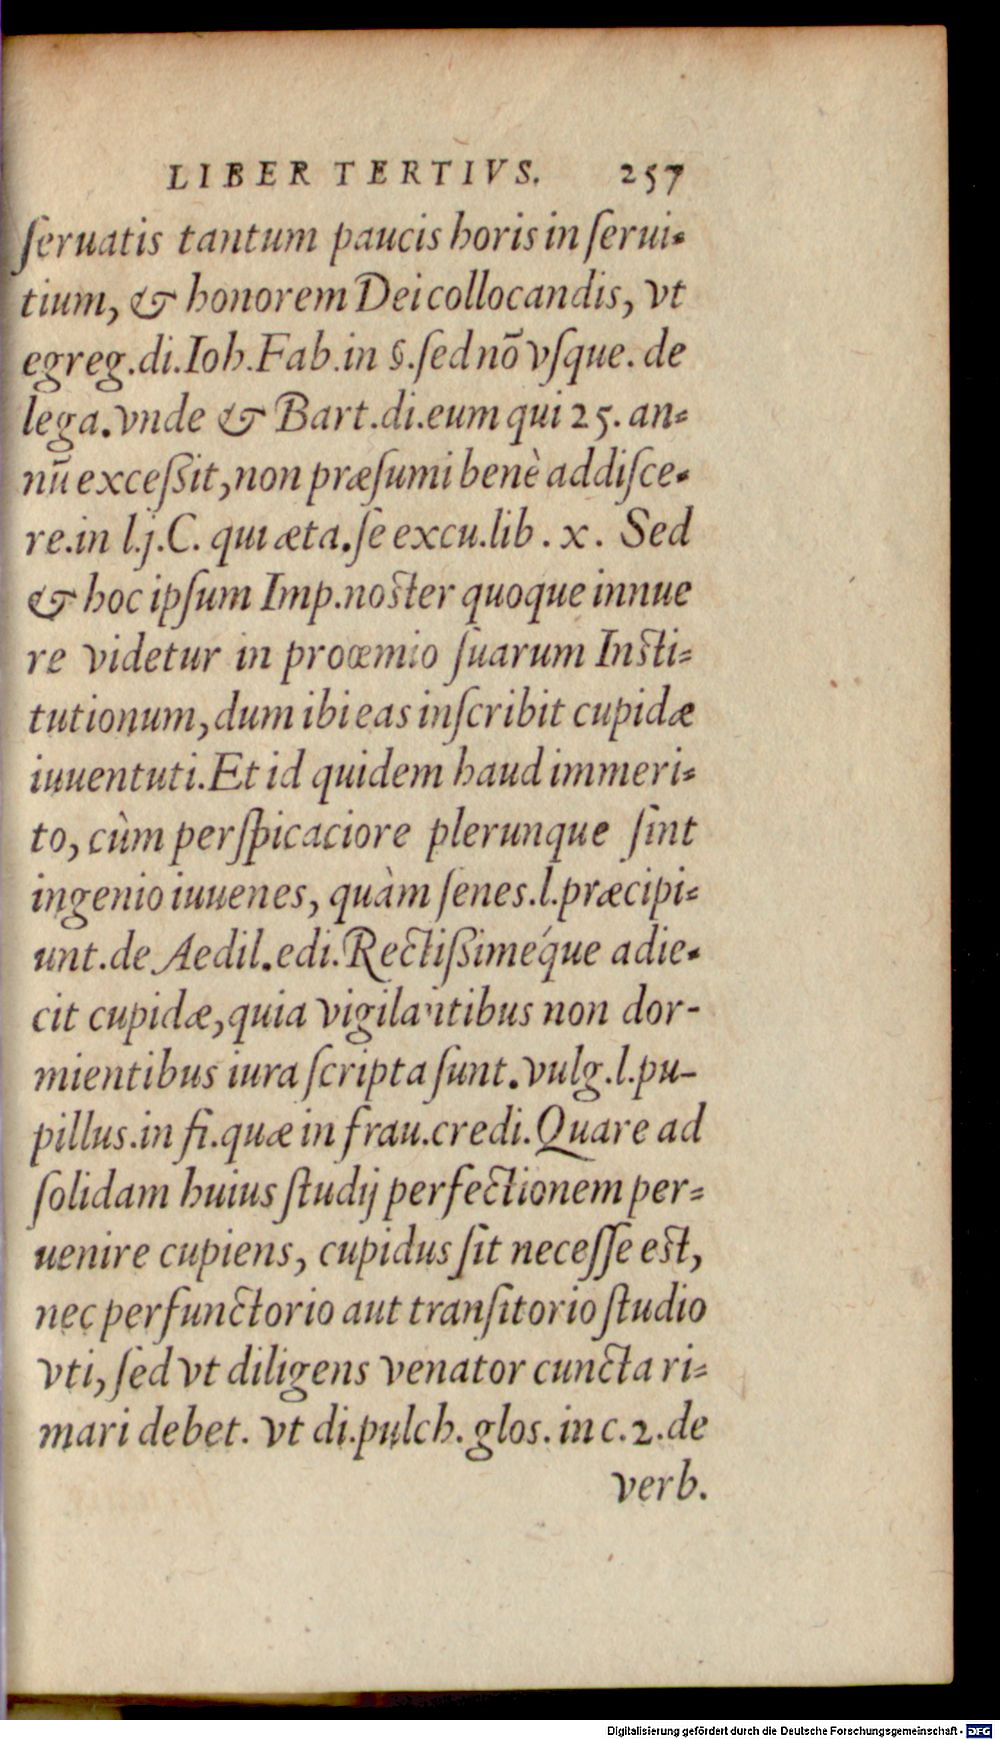 LIBER TERTIVS. 257
ſeruatis tantum paucis horis in ſerui-
tium, & honorem Dei collocandis, vt
egreg.di.Ioh.Fab.in §.ſed nō vſque. de
lega.vnde & Bart.di.eum qui 25. an-
nū exceſsit, non præſumi benè addiſce-
re.in l.j.C. qui æta.ſe excu.lib. x. Sed
& hoc ipſum Imp.noſter quoque innue
re videtur in proœmio ſuarum Inſti-
tutionum, dum ibi eas inſcribit cupidæ
iuuentuti.Et id quidem haud immeri-
to, cùm perſpicaciore plerunque ſint
ingenio iuuenes, quàm ſenes.l.præcipi-
unt.de Aedil.edi.Rectiſsiméque adie-
cit cupidæ, quia vigilantibus non dor-
mientibus iura ſcripta ſunt.vulg.l.pu-
pillus.in fi.quæ in frau.credi.Quare ad
ſolidam huius ſtudij perfectionem per-
uenire cupiens, cupidus ſit neceſſe eſt,
nec perfunctorio aut tranſitorio ſtudio
vti, ſed vt diligens venator cuncta ri-
mari debet. vt di.pulch. glos. in c.2.de
verb.
Digitalisierung gefördert durch die Deutsche Forschungsgemeinschaft - DFG